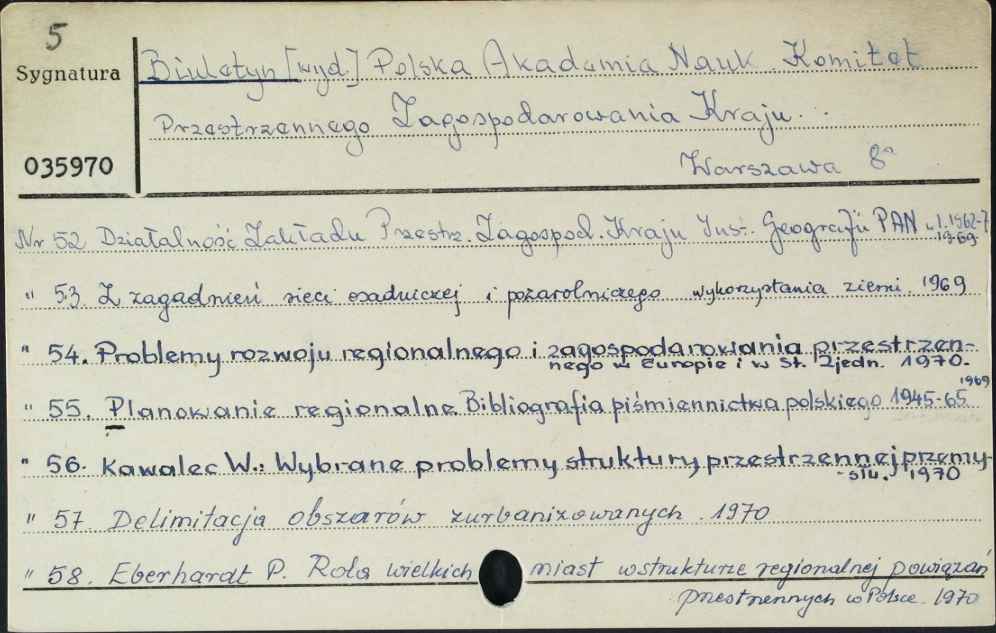 5
Sygnatura
035970
Biuletyn [wyd.] Polska Akademia Nauk. Komitet
Przestrzennego Zagospodarowania Kraju.
Warszawa 8°
Nr 52 Działalność Zakładu Przestrz. Zagospod. Kraju Inst. Geografii PAN 1.1962-7
1969
" 53. Z zagadnień sieci osadniczej i pozarolniczego wykorzystania ziemi. 1969
" 54. Problemy rozwoju regionalnego i zagospodarowania przestrzen-
nego w Europie i w St. Zjedn. 1970.
" 55. Planowanie regionalne. Bibliografia piśmiennictwa polskiego 1945-65 1969
" 56. Kawalec W.: Wybrane problemy struktury przestrzennej przemy-
-słu. 1970
" 57 Delimitacja obszarów zurbanizowanych. 1970
" 58. Eberhardt P. Rola wielkich miast w strukturze regionalnej powiązań
przestrzennych w Polsce. 1970